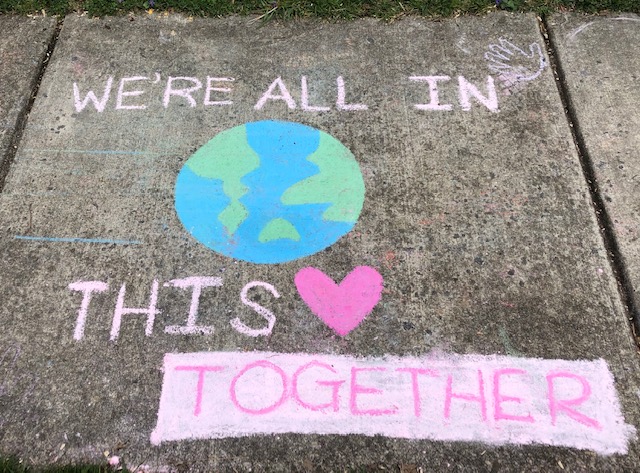 WE'RE ALL IN
THIS
TOGETHER